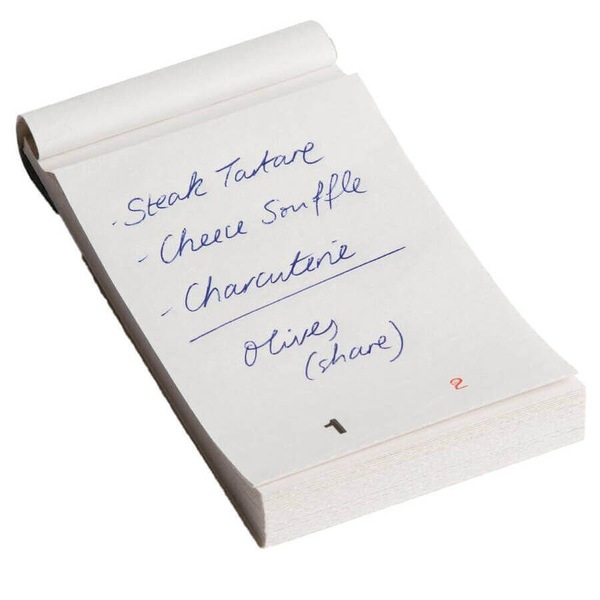 · Steak Tartare
- Cheece Souffle
- Charcuterie
Olives
(share)
1 2